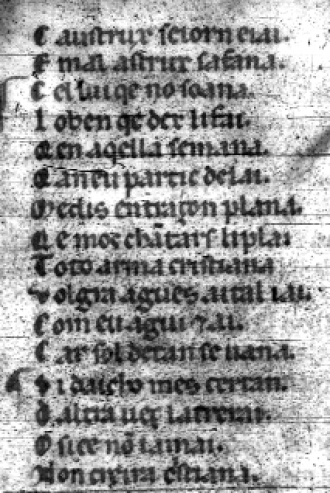 C austrux seiorn eiai.
E mal astrux safana.
C el lui qe no soana.
L o ben qe dex li fai.
Q en aqella semana.
Q an eu parti e delai.
M e dis en traçon plana.
Q e mos chātars li plai
T oto arma cristiana
V olgra agues aital iai.
C om eu agui 7 ai.
C ar sol de tan se uana.
S i daicho mes certan.
D altra uez la creirai.
O si ce nō iamai.
N on creira cstiana.